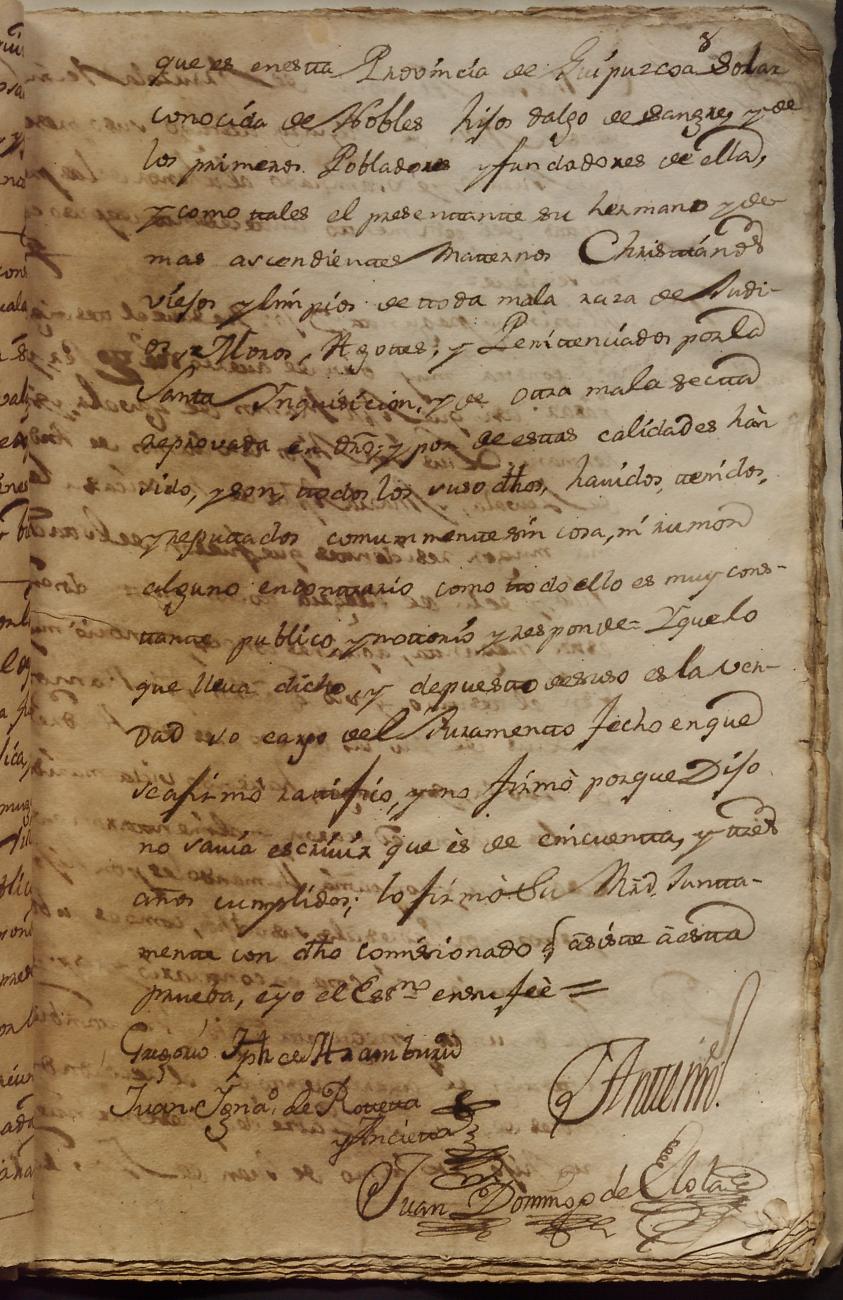 8
que es enestta Provincia de Guipuzcoa Solar
conocida de Nobles hijos dalgo de sangre, y de
los primeros Pobladores y fundadores de ella,
y como ttales el presenttantte su hermano y de
mas ascendienttes Matternos Christianos
viejos y limpios de ttoda mala raza de Judi-
os, Moros, Agottes, y Penittenciados por la
Santa Ynquisicion, y de otra mala sectta
reprovada en dro; y por de esttas calidades han
sido, y son ttodos los suso dhos, havidos, ttenidos,
y reputtados comunmentte sin cosa, ni rumor
alguno encontrario como ttodo ello es muy cons-
ttantte publico, y nottorio y responde = Yquelo
que lleva dicho, y depuestto desuso es la ver-
dad so cargo del Juramentto fecho enque
seafirmó rattificó, y no firmó porque Dijo
no savia escrivir que ès de cinquentta, y ttres
años cumplidos; lo firmò Su Mrd. Juntta-
mentte con dho comisionado q̃ asiste à estta
prueba, eyo el Essno ensu feè =
Gregorio Jph de Aramburu
Juan Ignaº. de Rotetta
y Anciettа
Anttemi
Juan Domingo de Elola